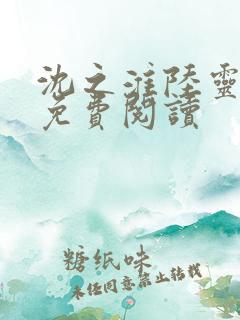 沈之淮陸靈
免費閱讀
糖纸味
未经同意禁止转载